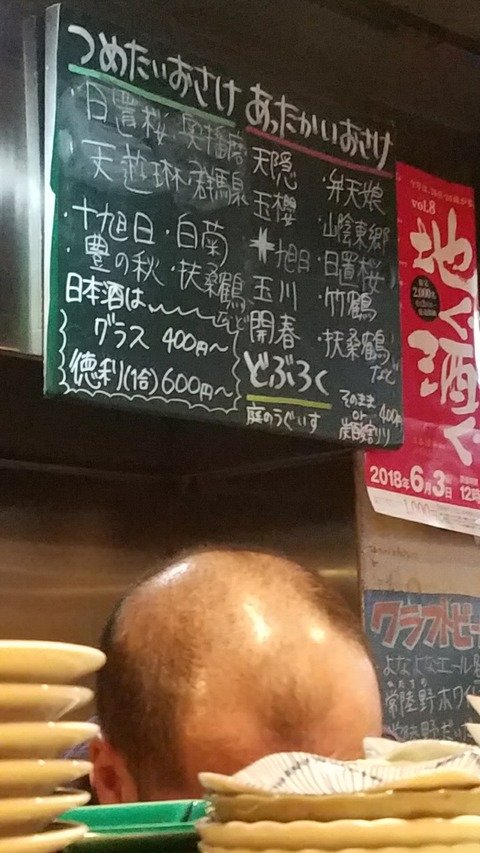 つめたいおさけ
日置桜 奥播磨
天遊琳・群馬泉
・十旭日・白菊
・豊の秋・扶桑鶴
など
日本酒は
グラス 400円〜
徳利(1合)600円〜
あったかいおさけ
天隠
玉櫻
十旭日
玉川
開春
・弁天娘
・山陰東郷
・日置桜
・竹鶴
・扶桑鶴
など
どぶろく
庭のうぐいす
そのまま
or
炭酸割り
400円
vol.8
地酒
2,000
2018年6月3日
12時
クラフトビー
よなよなエール
常陸野ホワイ
常陸野だい